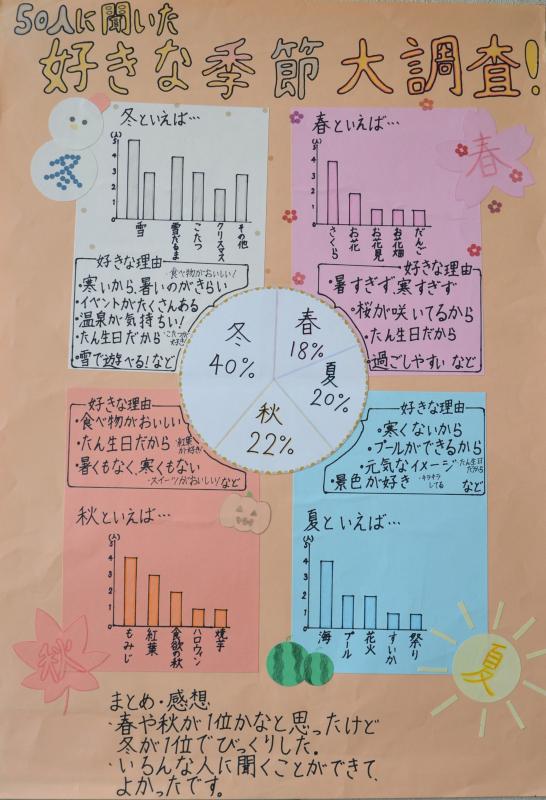 50人に聞いた
好きな季節大調査!
冬
冬といえば…
(人)
5
4
3
2
1
0
雪
雪だるま
こたつ
クリスマス
その他
好きな理由
・食べ物がおいしい!
・寒いから、暑いのがきらい
・イベントがたくさんある
・温泉が気持ちい!
・たん生日だから
・こたつが好き!
・雪で遊べる!など
春
春といえば…
(人)
5
4
3
2
1
0
さくら
お花
お花見
お花畑
だんご
好きな理由
・暑すぎず、寒すぎず
・桜が咲いてるから
・たん生日だから
・過ごしやすい など
冬
40%
春
18%
夏
20%
秋
22%
好きな理由
・食べ物がおいしい
・たん生日だから
・紅葉が好き!
・暑くもなく、寒くもない
・スイーツがおいしい!
など
秋といえば…
(人)
5
4
3
2
1
0
もみじ
紅葉
食欲の秋
ハロウィン
焼芋
秋
好きな理由
・寒くないから
・プールができるから
・元気なイメージ
・たん生日だから
・景色が好き
・キラキラしてる
など
夏といえば…
(人)
5
4
3
2
1
0
海
プール
花火
すいか
祭り
夏
まとめ・感想
・春や秋が1位かなと思ったけど
冬が1位でびっくりした.
・いろんな人に聞くことができて、
よかったです。